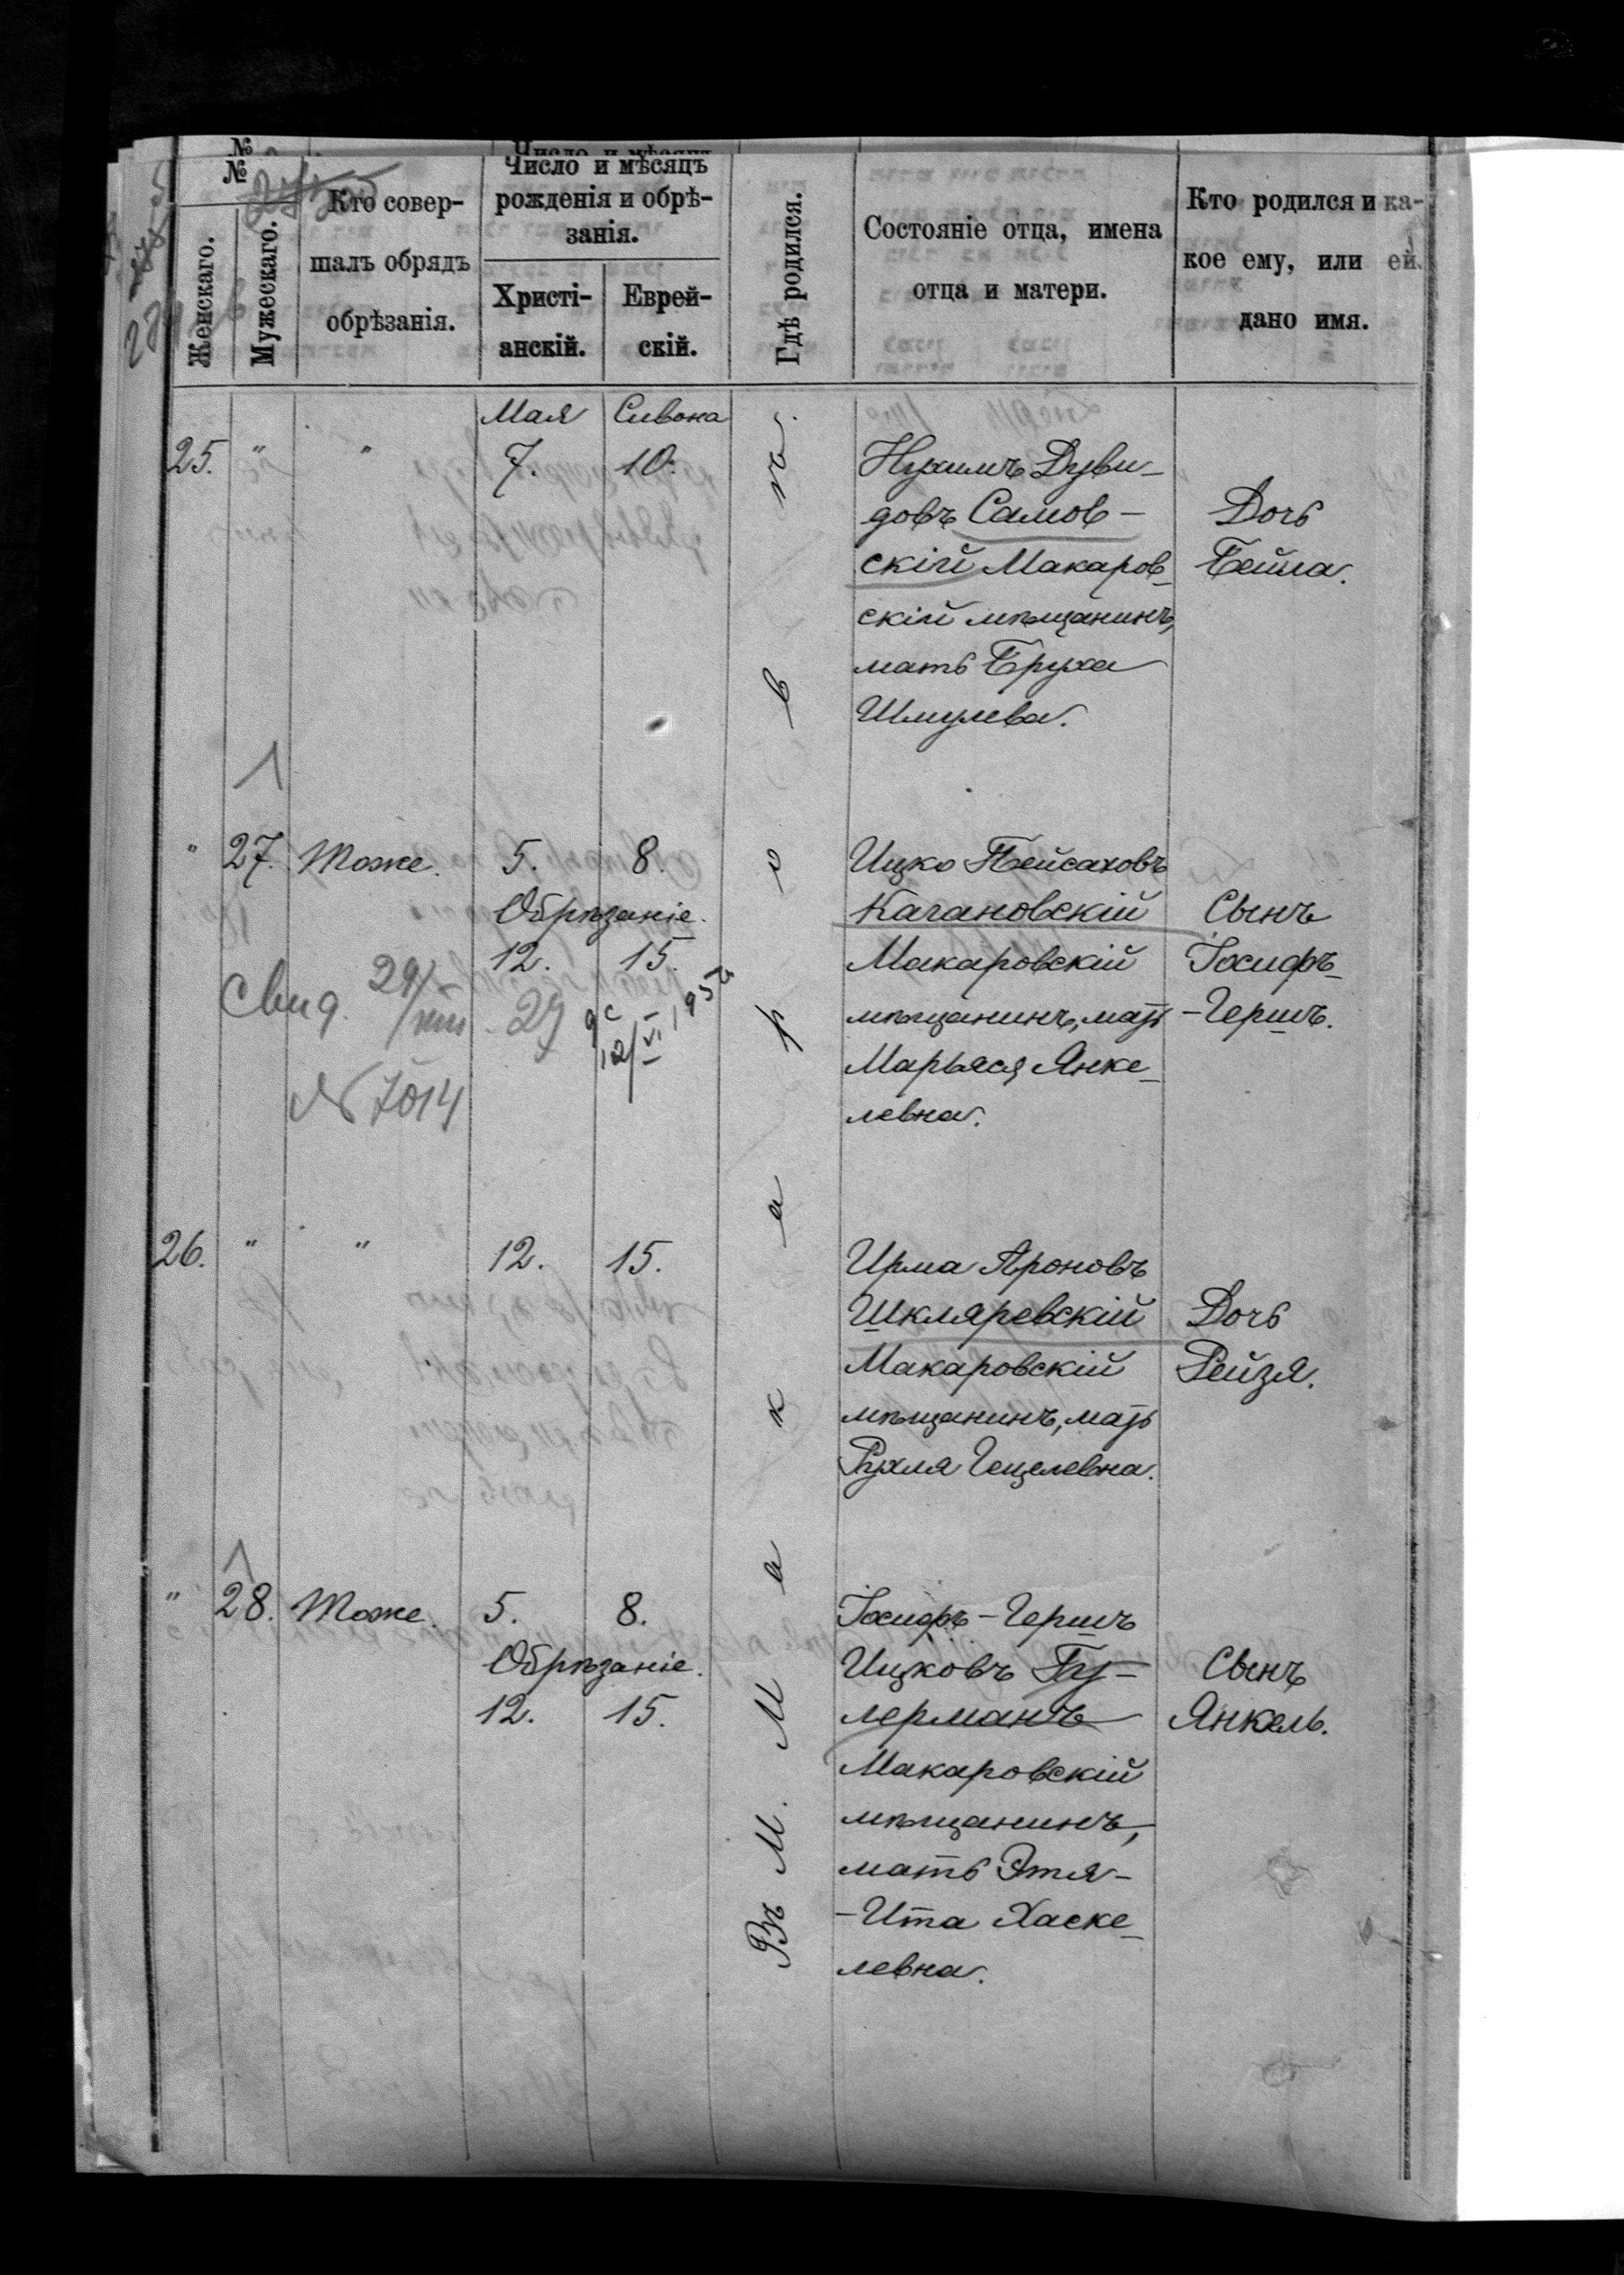 №
№
Женскаго.
Мужескаго.
Кто совер-
шалъ обрядъ
обрѣзанія.
Число и мѣсяцъ
рожденія и обрѣ-
занія.
Христі-
анскій.
Еврей-
скій.
Гдѣ родился.
Состояніе отца, имена
отца и матери.
Кто родился и ка-
кое ему, или ей
дано имя.
Въ М. Макаровѣ.
Мая Сивона
25. " " 7. 10.
Нухимъ Дуви-
довъ Самов-
скій Макаров-
скій мѣщанинъ,
мать Бруха
Шмулева.
Дочь
Бейла.
" 27. Тоже. 5. 8.
Обрѣзаніе.
12. 15.
Свид. 29/VIII 29
№ 7014
Ицко Пейсаховъ
Кагановскій
Макаровскій
мѣщанинъ, мать
Марьяся Янке-
левна.
Сынъ
Іосифъ-
-Гершъ.
26. " " 12. 15.
Ирма Ароновъ
Шкляревскій
Макаровскій
мѣщанинъ, мать
Рухля Гецелевна.
Дочь
Рейзя.
" 28. Тоже. 5. 8.
Обрѣзаніе.
12. 15.
Іосифъ-Гершъ
Ицковъ Гу-
лерманъ
Макаровскій
мѣщанинъ,
мать Этя-
-Ита Хаске-
левна.
Сынъ
Янкель.